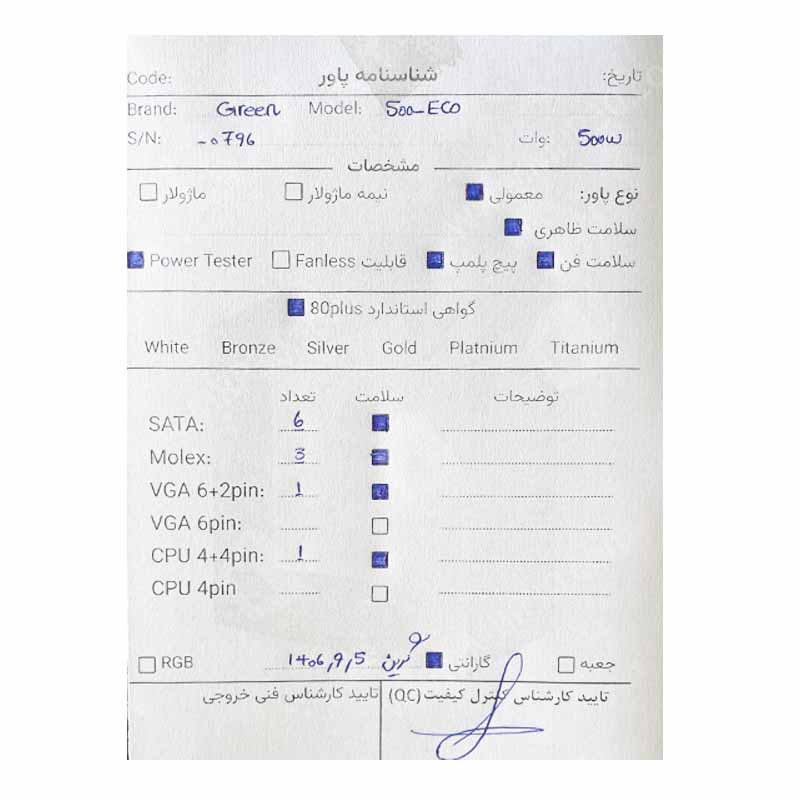 Code: شناسنامه پاور تاریخ:
Brand: Green Model: 500-ECO
S/N: -0796 وات: 500w
مشخصات
نوع پاور: معمولی نیمه ماژولار ماژولار
سلامت ظاهری
سلامت فن پیچ پلمپ قابلیت Fanless Power Tester
گواهی استاندارد 80plus
White Bronze Silver Gold Platnium Titanium
تعداد سلامت توضیحات
SATA: 6
Molex: 3
VGA 6+2pin: 1
VGA 6pin:
CPU 4+4pin: 1
CPU 4pin
جعبه گارانتی گرین 1406,9,5 RGB
تایید کارشناس کنترل کیفیت (QC) تایید کارشناس فنی خروجی